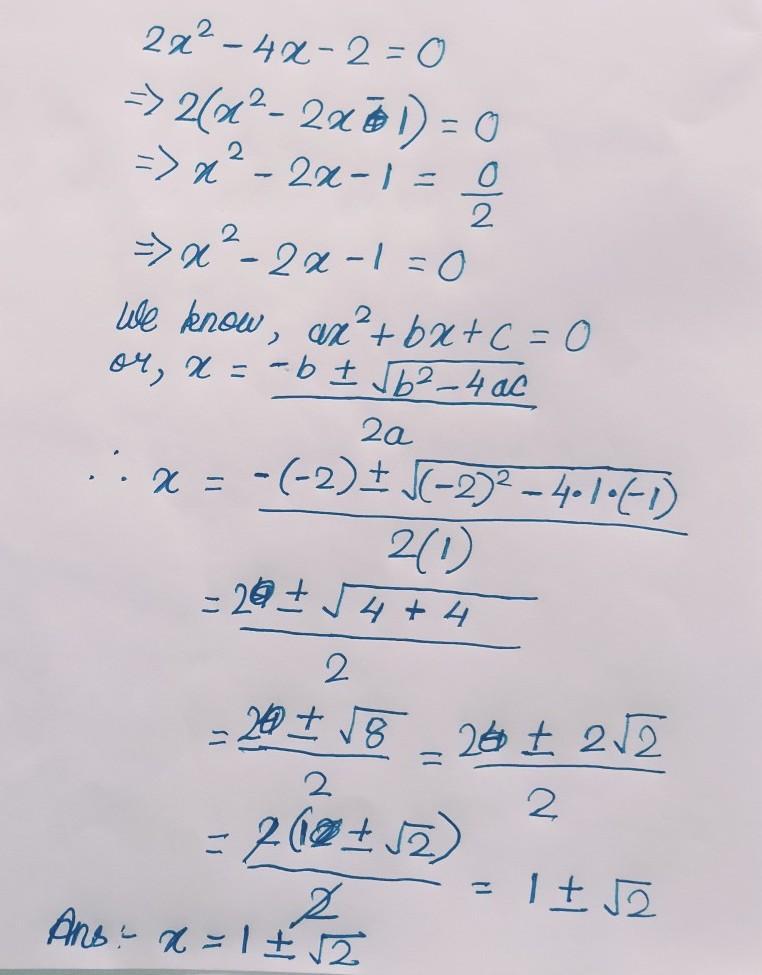 2x² - 4x - 2 = 0
=> 2(x² - 2x - 1) = 0
=> x² - 2x - 1 = 0/2
=> x² - 2x - 1 = 0
We know, ax² + bx + c = 0
or, x = (-b ± √(b² - 4ac))/2a
∴ x = (-(-2) ± √((-2)² - 4·1·(-1)))/2(1)
= (2 ± √(4 + 4))/2
= (2 ± √8)/2 = (2 ± 2√2)/2
= 2(1 ± √2)/2 = 1 ± √2
Ans:- x = 1 ± √2